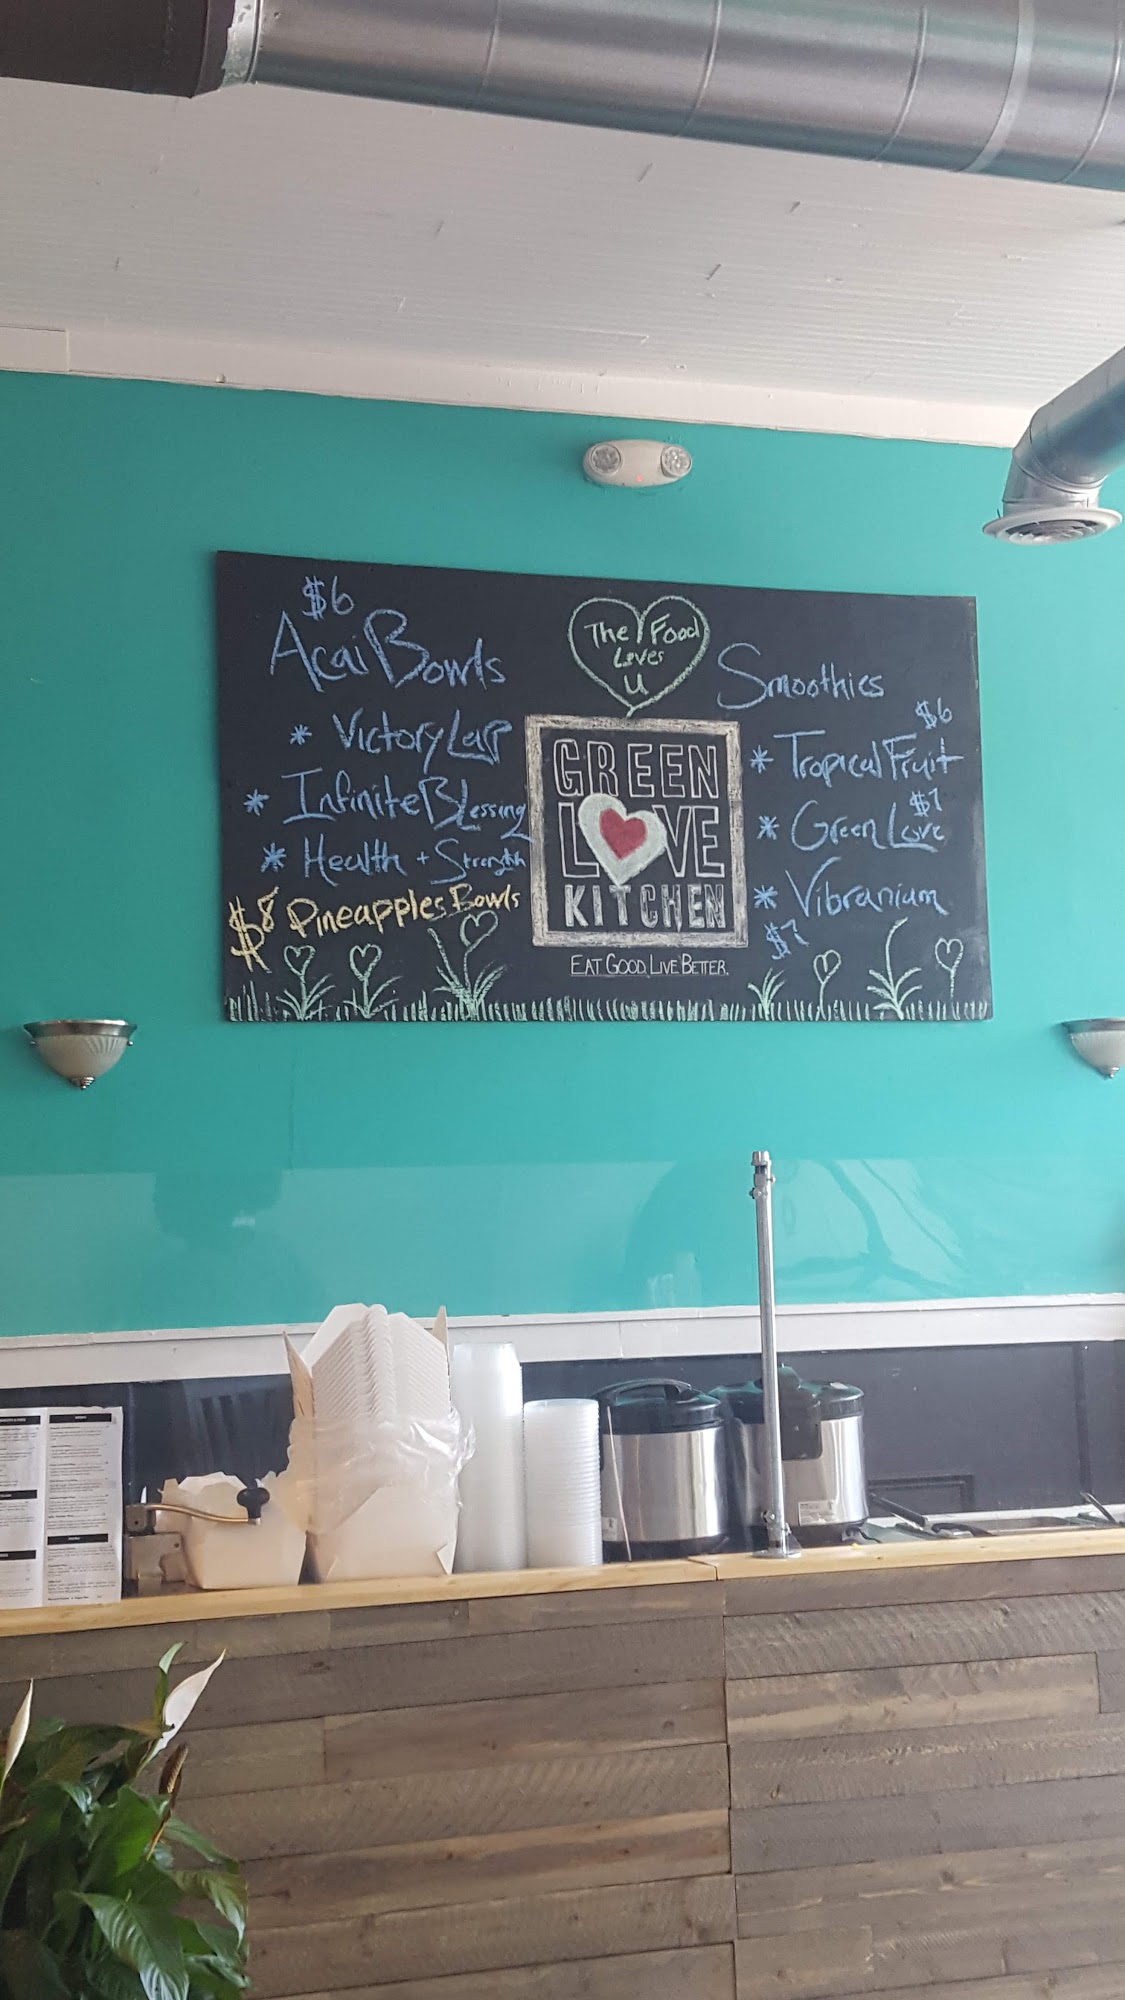 $6
Acai Bowls
* Victory Lap
* Infinite Blessing
* Health + Strength
$8 Pineapples Bowls
The Food
Loves
U
GREEN
LOVE
KITCHEN
EAT GOOD. LIVE BETTER.
Smoothies
$6
* Tropical Fruit
$7
* Green Love
* Vibranium
$7